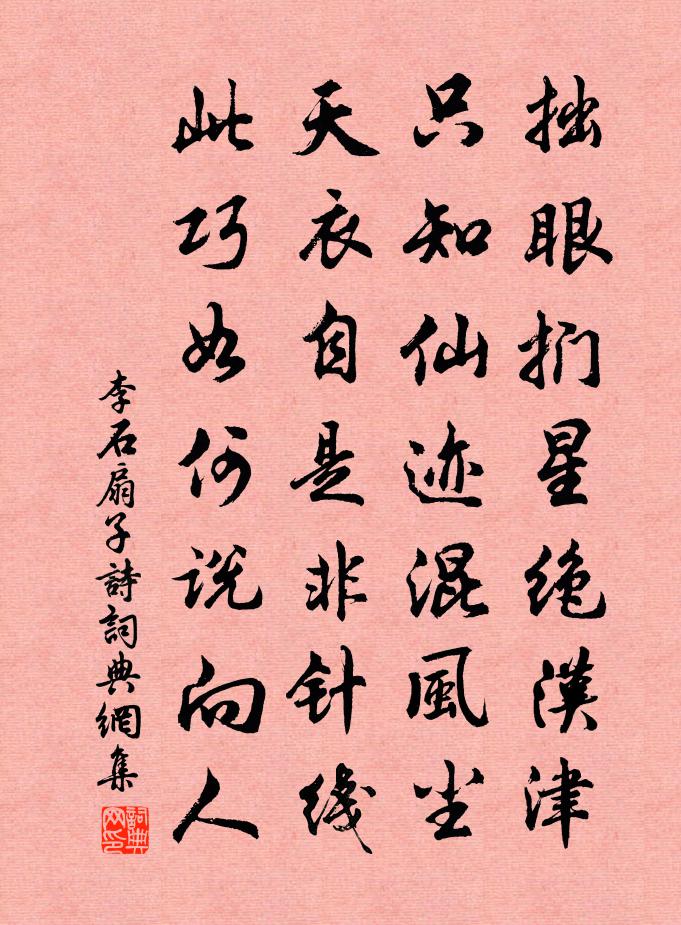 拙眼扪星绝漢津
只知仙迹混風尘
天衣自是非针线
此巧如何说向人
李石扇子詩詞典網集
詞典网印